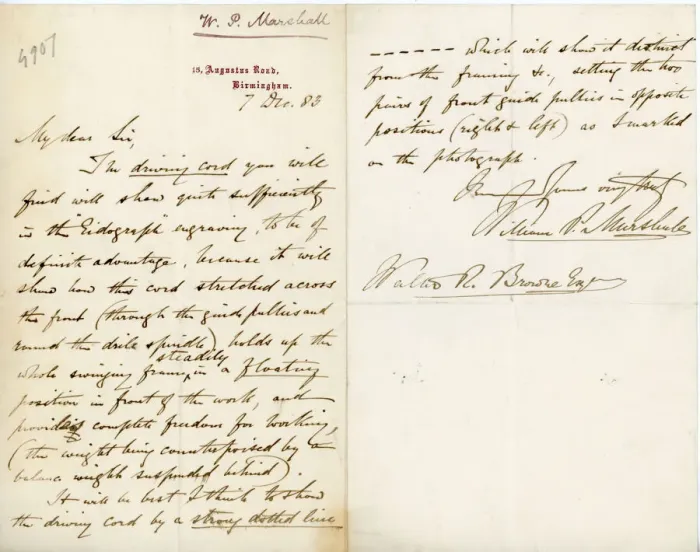 W. P. Marshall
4907
15, Augustus Road,
Birmingham.
7 Dec. 83
My dear Sir,
The driving cord you will
find will show quite sufficiently
in the "Eidograph" engraving, to be of
definite advantage, because it will
show how this cord stretched across
the front (through the guide pullies and
round the drill spindle) holds up the
whole swinging frame, steadily in a floating
position in front of the work, and
provides complete freedom for working,
(the weight being counterpoised by a
balance weight suspended behind).
It will be best I think to show
the driving cord by a strong dotted line
- - - - - - which will show it distinct
from the framing &c., setting the two
pairs of front guide pullies in opposite
positions (right & left) as I marked
on the photograph.
Yours very truly
William P. Marshall
Walter R. Browne Esq